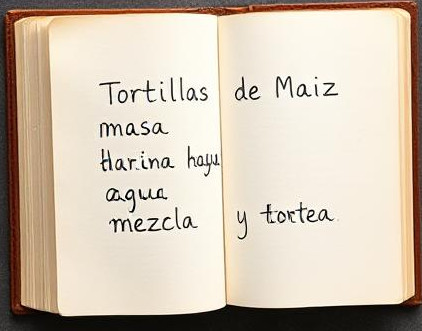 Tortillas de Maiz
masa
Harina
agua
mezcla y tortea